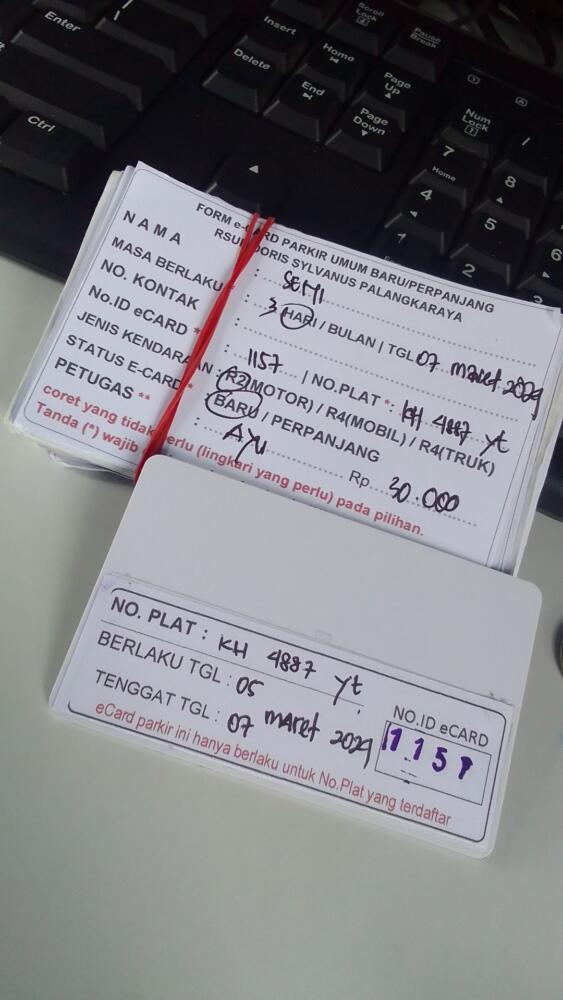 Enter
Insert
Scroll
Lock
Pause
Break
Delete
Home
Page
Up
End
Page
Down
Num
Lock
Ctrl
7
8
Home
4
5
6
1
2
FORM e-CARD PARKIR UMUM BARU/PERPANJANG
RSUD DORIS SYLVANUS PALANGKARAYA
NAMA : SEMI
MASA BERLAKU : 3 HARI / BULAN | TGL 07 maret 2029
NO. KONTAK :
No.ID eCARD * : 1157 | NO.PLAT *: KH 4887 yt
JENIS KENDARAAN : R2(MOTOR) / R4(MOBIL) / R4(TRUK)
STATUS E-CARD * : BARU / PERPANJANG
PETUGAS ** : AYU Rp 30.000
coret yang tidak perlu (lingkari yang perlu) pada pilihan.
Tanda (*) wajib
NO. PLAT : KH 4887 yt
BERLAKU TGL : 05
TENGGAT TGL : 07 maret 2029
NO.ID eCARD
1157
eCard parkir ini hanya berlaku untuk No.Plat yang terdaftar